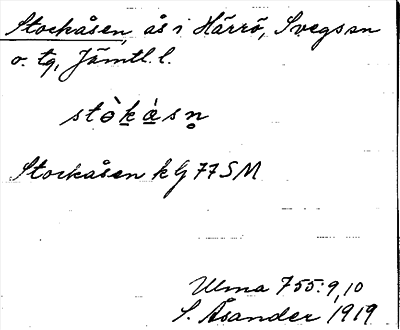 Stockåsen, ås i Härrö, Svegs sn
o. tg, Jämtl. l.
stòkàsn̥
Stockåsen k G 77 SM
Ulma 755:9,10
S. Åsander 1919